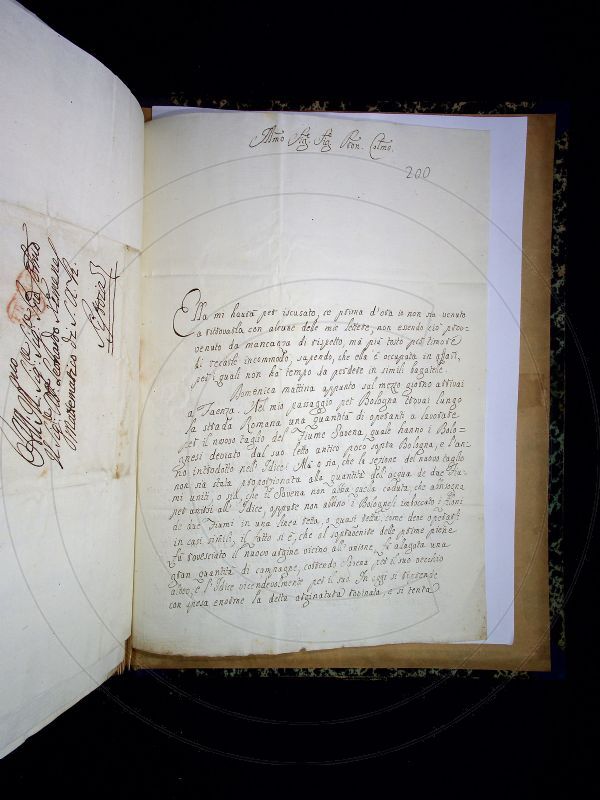 Illmo Sig. Sig. Pron. Colmo
200
Ella mi haurà per iscusato, se prima d'ora io non sia venuto
a ritrovarla con alcune delle mie lettere, non essendo ciò prov-
venuto da mancanza di rispetto, mà più tosto per timore
di recarle incommodo, sapendo, che ella è occupata in affari,
per i quali non ha tempo da perdere in simili bagatele.
Domenica mattina appunto sul mezzo giorno arrivai
a Faenza. Nel mio passaggio per Bologna trovai lungo
la strada Romana una quantità di operanti a lavorare
per il nuovo taglio del Fiume Savena, quale hanno i Bolo-
gnesi deviato dal suo letto antico poco sopra Bologna, e l'an-
no introdotto nell'Idice. Mà o sia, che la sezione del nuovo taglio
non sia stata proporzionata alla quantità dell'acqua de due Fiu-
mi uniti, o già, che il Savena non abbia quella caduta, che abbisogna
per unirsi all'Idice, oppure non abbino i Bolognesi imboccato i Fiumi
de due Fiumi in una linea retta, o quasi retta, come deve operarsi
in casi simili, il fatto si è, che al sopravenire delle prime piene
fu rovesciato il nuovo argine vicino all'unione, fù allagata una
gran quantità di campagne, correndo Savena per il suo vecchio
alveo, e l'Idice vicendevolmente per il suo. In oggi si riprende
con spesa enorme la detta arginatura rovinata, e si tenta